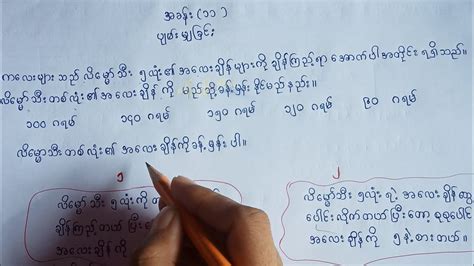 အခန်း (၁၁)
ပျမ်းမျှခြင်း
ကလေးများသည် လိမ္မော်သီး ၅ လုံး၏ အလေးချိန်များကို ချိန်ကြည့်ရာ အောက်ပါအတိုင်း ရရှိသည်။
လိမ္မော်သီးတစ်လုံး၏ အလေးချိန်ကို မည်သို့ခန့်မှန်းနိုင်မည်နည်း။
၁၀၀ ဂရမ် ၁၄၀ ဂရမ် ၁၅၀ ဂရမ် ၁၂၀ ဂရမ် ၉၀ ဂရမ်
လိမ္မော်သီးတစ်လုံး၏ အလေးချိန်ကိုခန့်မှန်းပါ။
၁
လိမ္မော်သီး ၅လုံးကို
ချိန်ကြည့်
အလေးချိန်ကို
၂
လိမ္မော်သီး ၅လုံးရဲ့ အလေးချိန်တွေ
ပေါင်းလိုက်တယ် ပြီးတော့ စုစုပေါင်း
အလေးချိန်ကို ၅နဲ့ စားတယ်